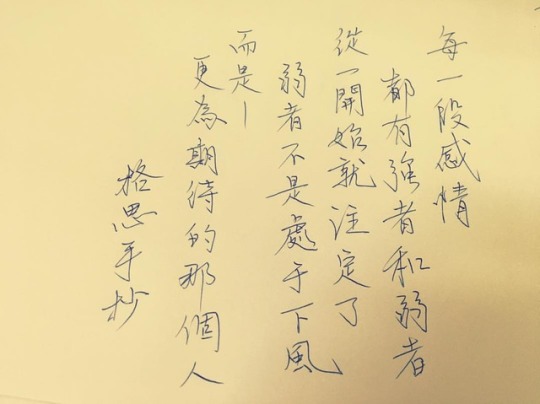 每一段感情
都有強者和弱者
從一開始就注定了
弱者不是處于下風
而是—
更為期待的那個人
格思手抄